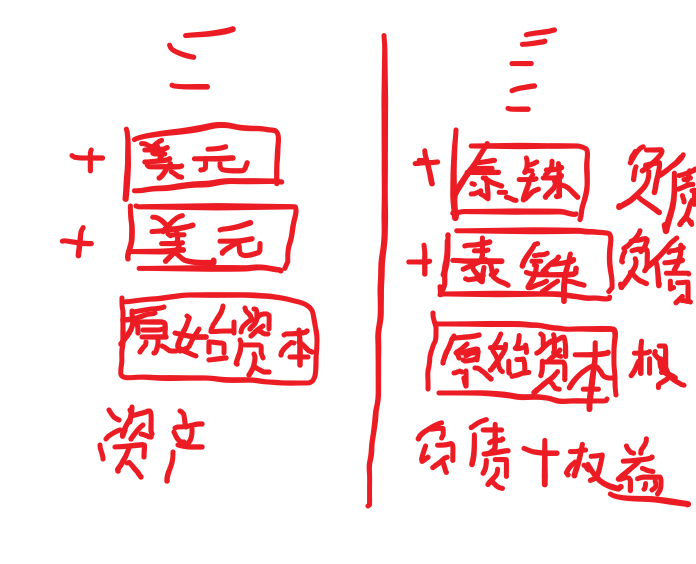 + 美元
+ 美元
原始资本
资产
+ 泰铢 负债
+ 泰铢 负债
原始资本 权
负债+权益